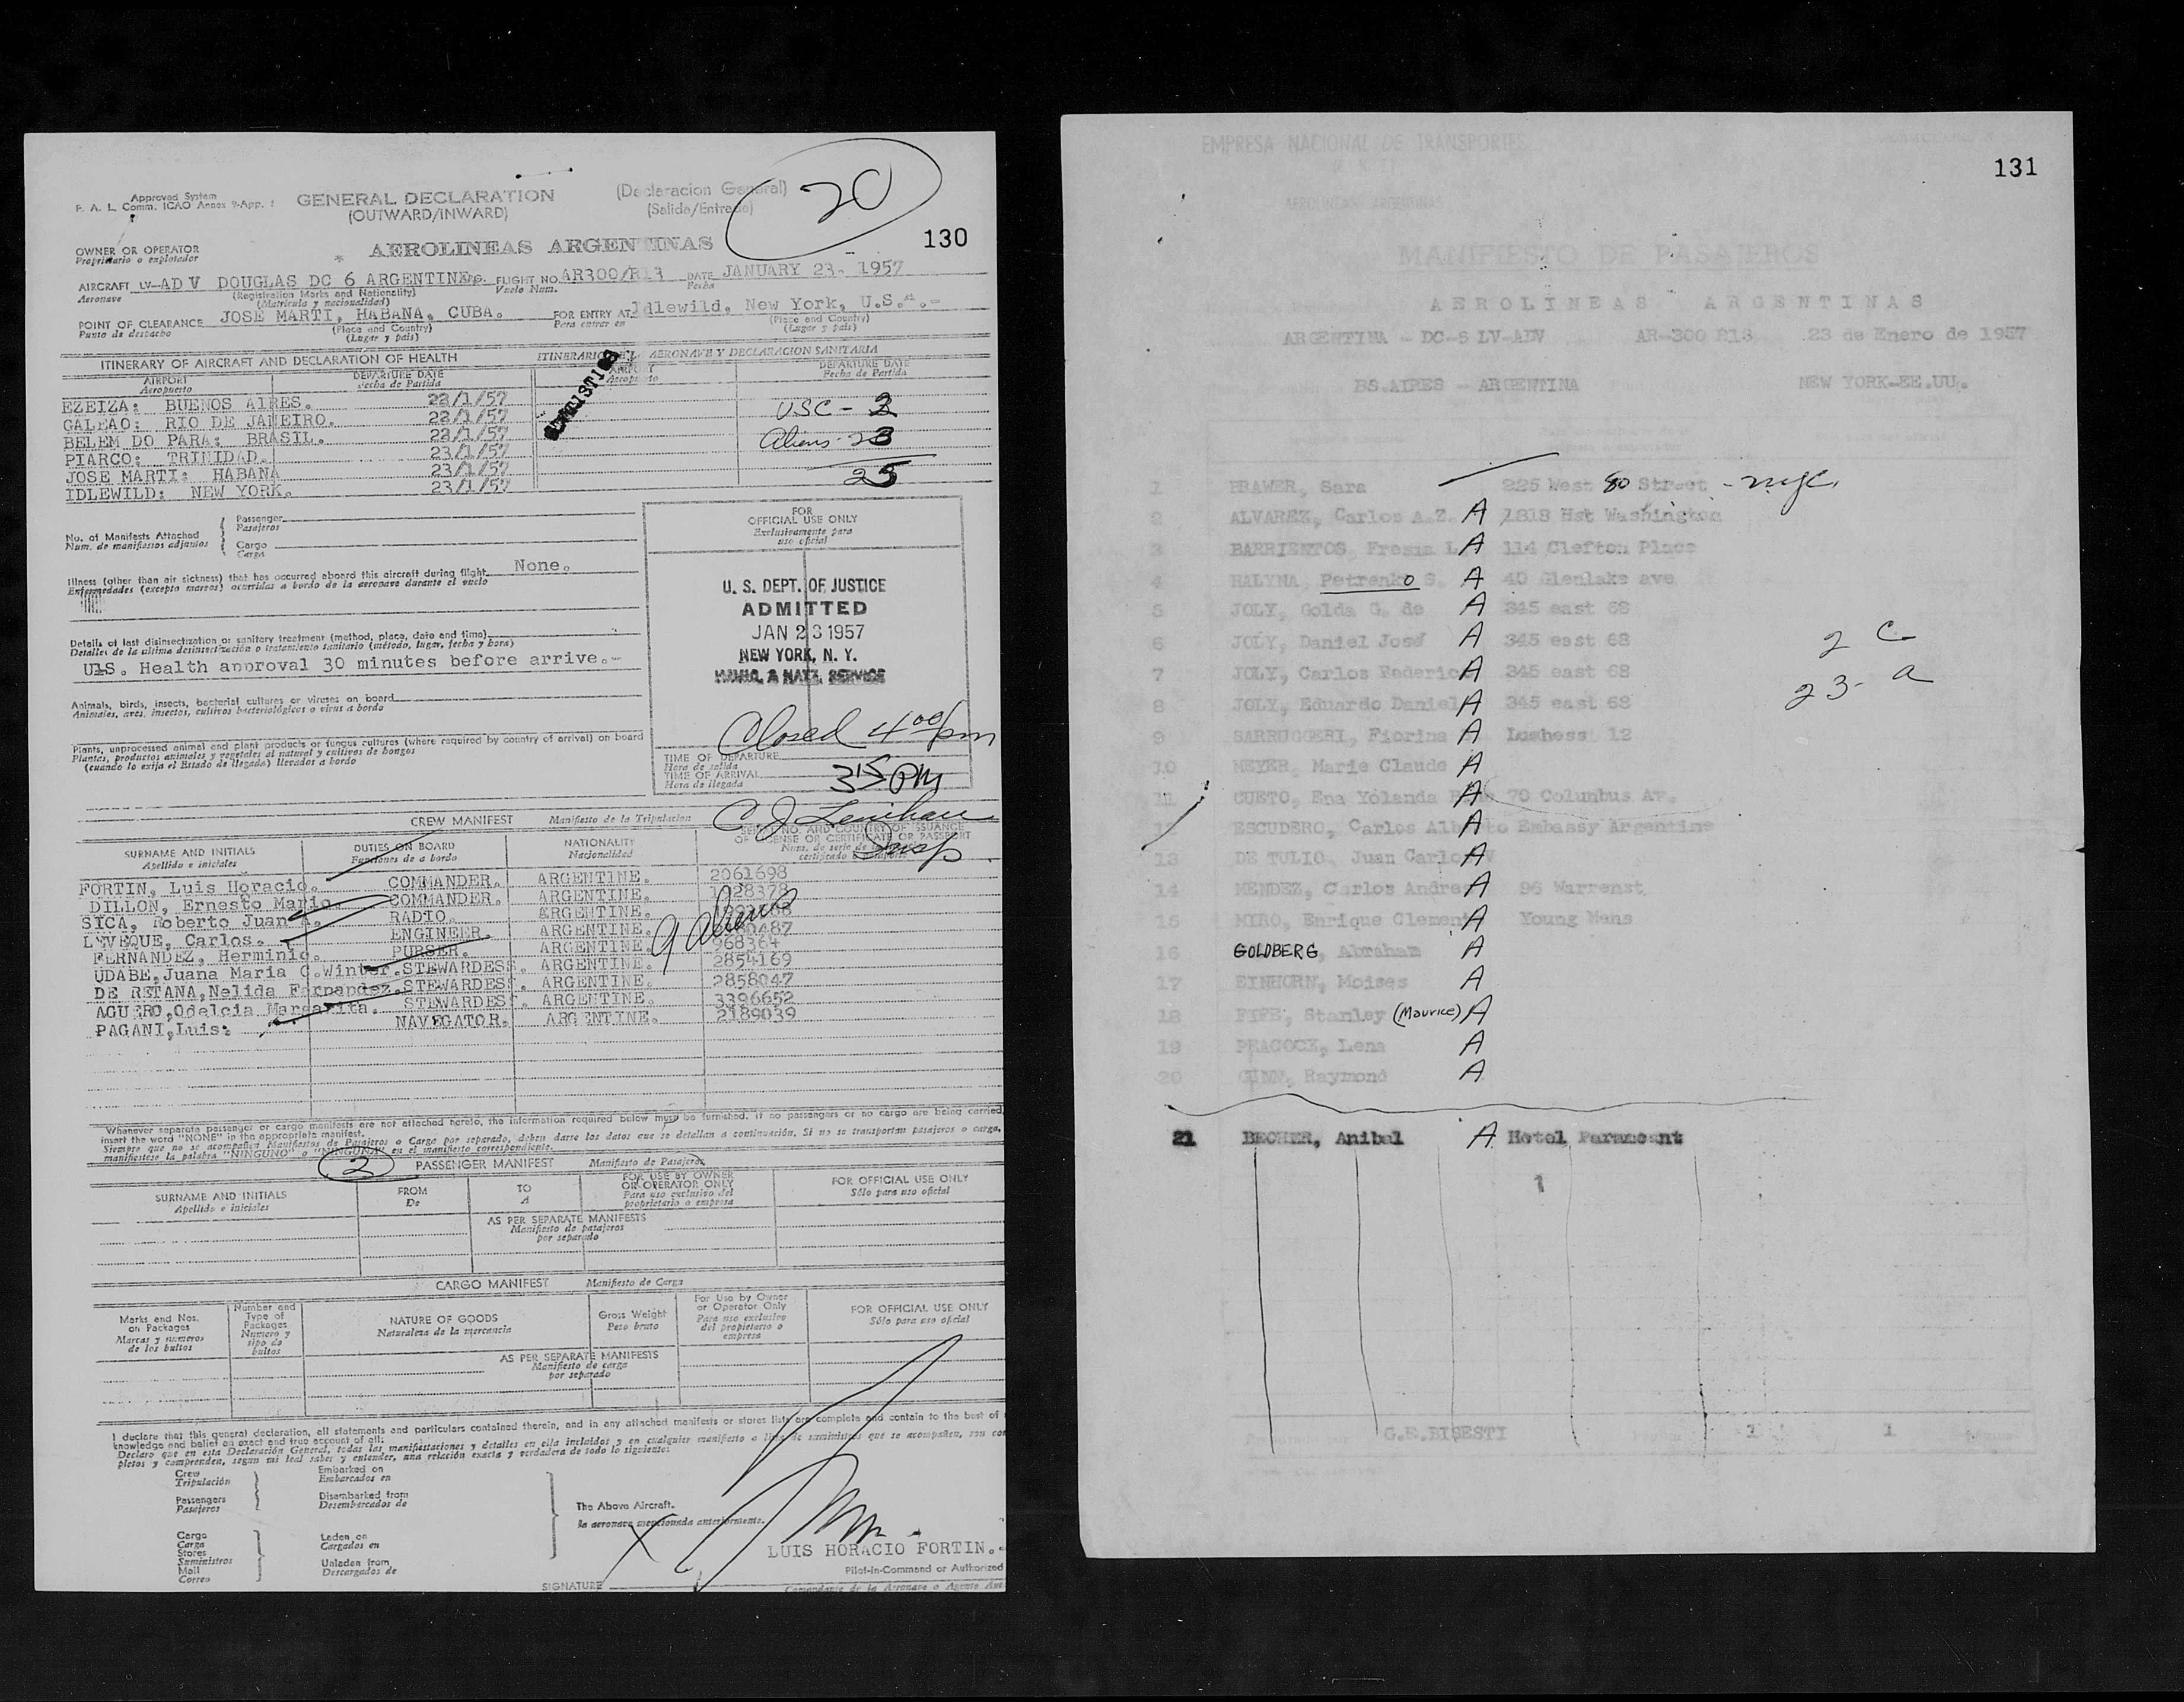 Approved System
F. A. L. Comm. ICAO Annex 9-App. 1
GENERAL DECLARATION
(OUTWARD/INWARD)
(Declaracion General)
(Salida/Entrada)
20
130
OWNER OR OPERATOR
Propietario o explotador
* AEROLINEAS ARGENTINAS
AIRCRAFT LV-ADV DOUGLAS DC 6 ARGENTINE FLIGHT NO. AR300/R13 DATE JANUARY 23- 1957
Aeronave
(Registration Marks and Nationality)
(Matricula y nacionalidad)
Vuelo Num.
Fecha
POINT OF CLEARANCE JOSE MARTI, HABANA, CUBA. FOR ENTRY AT Idlewild, New York, U.S.A.-
Punto de despacho
(Place and Country)
(Lugar y pais)
Para entrar en
(Place and Country)
(Lugar y pais)
ITINERARY OF AIRCRAFT AND DECLARATION OF HEALTH
AERONAVE Y DECLARACION SANITARIA
AIRPORT
Aeropuerto
DEPARTURE DATE
Fecha de Partida
DEPARTURE DATE
Fecha de Partida
EZEIZA: BUENOS AIRES. 22/1/57
GALEAO: RIO DE JANEIRO. 22/1/57
BELEM DO PARA: BRASIL. 22/1/57
PIARCO: TRINIDAD. 23/1/57
JOSE MARTI: HABANA 23/1/57
IDLEWILD: NEW YORK. 23/1/57
USC - 2
Aliens - 23
25
No. of Manifests Attached
Num. de manifiestos adjuntos
Passenger
Pasajeros
Cargo
Carga
FOR
OFFICIAL USE ONLY
Exclusivamente para
uso oficial
Illness (other than air sickness) that has occurred aboard this aircraft during flight None.
Enfermedades (excepto mareos) ocurridas a bordo de la aeronave durante el vuelo
U. S. DEPT. OF JUSTICE
ADMITTED
JAN 23 1957
NEW YORK, N. Y.
IMMIG. & NATZ. SERVICE
Details of last disinsectization or sanitary treatment (method, place, date and time)
Detalles de la ultima desinsectización o tratamiento sanitario (método, lugar, fecha y hora)
U.S. Health approval 30 minutes before arrive.-
Animals, birds, insects, bacterial cultures or viruses on board
Animales, aves, insectos, cultivos bacteriológicos o virus a bordo
Plants, unprocessed animal and plant products or fungus cultures (where required by country of arrival) on board
Plantas, productos animales y vegetales al natural y cultivos de hongos
(cuando lo exija el Estado de llegada) llevados a bordo
Closed 4 00 pm
TIME OF DEPARTURE
Hora de salida
TIME OF ARRIVAL
Hora de llegada
3 15 PM
C. J. Lenihan
Insp
CREW MANIFEST Manifiesto de la Tripulacion
SURNAME AND INITIALS
Apellido e iniciales
DUTIES ON BOARD
Funciones de a bordo
NATIONALITY
Nacionalidad
SERIAL NO. AND COUNTRY OF ISSUANCE
OF LICENSE OR CERTIFICATE OR PASSPORT
FORTIN, Luis Horacio. COMMANDER. ARGENTINE. 2061698
DILLON, Ernesto Mario. COMMANDER. ARGENTINE. 1928378
SICA, Roberto Juan A. RADIO. ARGENTINE.
LEVEQUE, Carlos. ENGINEER. ARGENTINE.
FERNANDEZ, Herminio. PURSER. ARGENTINE. 968364
UDABE, Juana Maria C. Winter. STEWARDESS. ARGENTINE. 2854169
DE RETANA, Nelida Fernandez. STEWARDESS. ARGENTINE. 2858047
AGUERO, Odelcia Margarita. STEWARDESS. ARGENTINE. 3396652
PAGANI, Luis: NAVEGATOR. ARGENTINE. 2189039
9 aliens
Whenever separate passenger or cargo manifests are not attached hereto, the information required below must be furnished. If no passengers or no cargo are being carried,
insert the word "NONE" in the appropriate manifest.
Siempre que no se acompañen Manifiestos de Pasajeros o Carga por separado, deben darse los datos que se detallan a continuación. Si no se transportan pasajeros o carga,
manifiestese la palabra "NINGUNO" o "NINGUNA" en el manifiesto correspondiente.
2
PASSENGER MANIFEST Manifiesto de Pasajeros
SURNAME AND INITIALS
Apellido e iniciales
FROM
De
TO
A
FOR USE BY OWNER
OR OPERATOR ONLY
Para uso exclusivo del
propietario o empresa
FOR OFFICIAL USE ONLY
Sólo para uso oficial
AS PER SEPARATE MANIFESTS
Manifiesto de pasajeros
por separado
CARGO MANIFEST Manifiesto de Carga
Marks and Nos.
on Packages
Marcas y numeros
de los bultos
Number and
Type of
Packages
Numero y
tipo de
bultos
NATURE OF GOODS
Naturaleza de la mercancia
Gross Weight
Peso bruto
For Use by Owner
or Operator Only
Para uso exclusivo
del propietario o
empresa
FOR OFFICIAL USE ONLY
Sólo para uso oficial
AS PER SEPARATE MANIFESTS
Manifiesto de carga
por separado
I declare that this general declaration, all statements and particulars contained therein, and in any attached manifests or stores lists are complete and contain to the best of
knowledge and belief an exact and true account of all:
Declaro que en esta Declaración General, todas las manifiestaciones y detalles en ella incluidos y en cualquier manifiesto o lista de suministros que se acompañen, son com
pletos y comprenden, segun mi leal saber y entender, una relación exacta y verdadera de todo lo siguiente:
Crew
Tripulación
Passengers
Pasajeros
Embarked on
Embarcados en
Disembarked from
Desembarcados de
Cargo
Carga
Stores
Suministros
Mail
Correo
Laden on
Cargados en
Unladen from
Descargados de
The Above Aircraft.
la aeronave mencionada anteriormente.
X
LUIS HORACIO FORTIN.-
Pilot-in-Command or Authorized
SIGNATURE
Comandante de la Aeronave o Agente Aut
EMPRESA NACIONAL DE TRANSPORTES
131
AEROLINEAS ARGENTINAS
MANIFIESTO DE PASAJEROS
AEROLINEAS ARGENTINAS
ARGENTINA - DC-6 LV-ADV AR-300 R13 23 de Enero de 1957
BS.AIRES - ARGENTINA NEW YORK-EE.UU.
1 BRAWER, Sara 225 West 80 Street - NYC.
2 ALVAREZ, Carlos A.Z. A 1818 Hst Washington
3 BARRIENTOS Fresia L. A 114 Clefton Place
4 HALYNA Petrenko S. A 40 Glenlake ave
5 JOLY, Golda G. de A 345 east 68
6 JOLY, Daniel José A 345 east 68
7 JOLY, Carlos Federico A 345 east 68
8 JOLY, Eduardo Daniel A 345 east 68
2 C
23 - a
9 SARRUGGERI, Fiorina A Luchess 12
10 MEYER, Marie Claude A
11 CUETO, Ena Yolanda A 70 Columbus Av.
12 ESCUDERO, Carlos Alberto A Embassy Argentine
13 DE TULIO, Juan Carlos A
14 MENDEZ, Carlos Andres A 96 Warrenst
15 MIRO, Enrique Clement A Young Mens
16 GOLDBERG, Abraham A
17 EINHORN, Moises A
18 FIFE, Stanley (Maurice) A
19 PEACOCK, Lena A
20 GUNN, Raymond A
21 BECHER, Anibal A Hotel Paramount
1
G.E.BISESTI 1 1